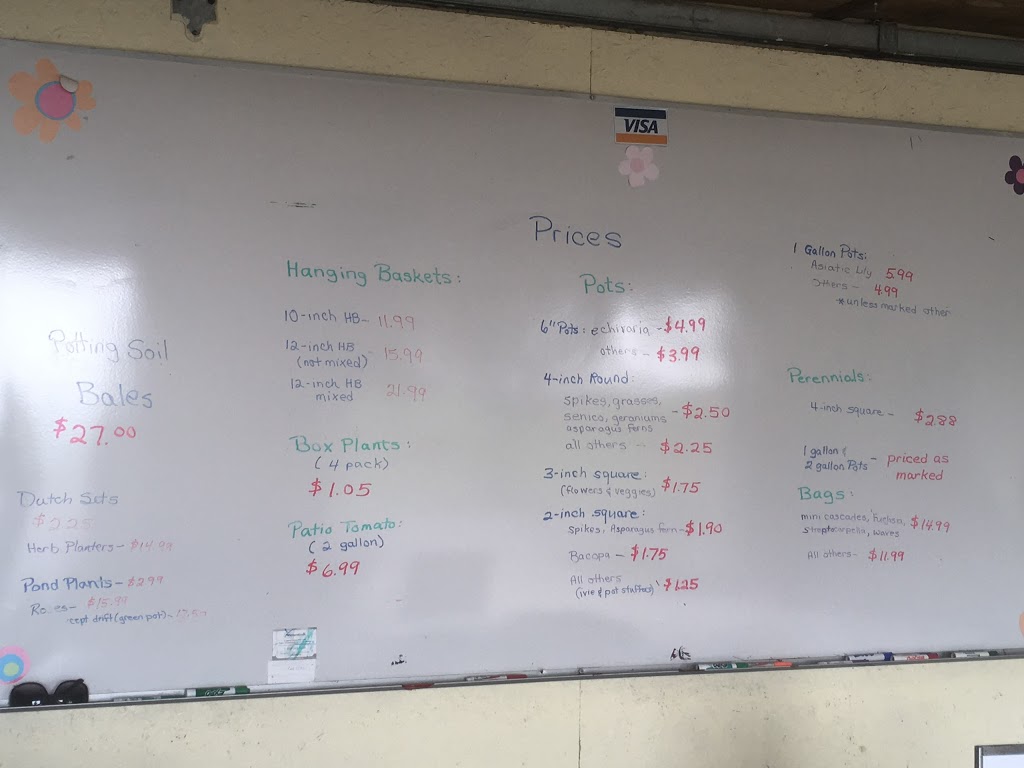 VISA
Prices
Potting Soil
Bales
$27.00
Dutch Sets
$2.25
Herb Planters - $14.99
Pond Plants - $2.99
$15.99
drift (green pot) -
Hanging Baskets:
10-inch HB - 11.99
12-inch HB
(not mixed) - 15.99
12-inch HB
mixed 21.99
Box Plants:
(4 pack)
$1.05
Patio Tomato:
(2 gallon)
$6.99
Pots:
6" Pots: echivaria - $4.99
others - $3.99
4-inch Round:
Spikes, grasses,
senico, geraniums - $2.50
asparagus ferns
all others - $2.25
3-inch square:
(flowers & veggies) $1.75
2-inch square:
Spikes, Asparagus fern - $1.90
Bacopa - $1.75
All others
(ivie & pot stuffers) $1.25
1 Gallon Pots:
Asiatic Lily 5.99
Others - 4.99
*unless marked other
Perennials:
4-inch square - $2.88
1 gallon &
2 gallon Pots - priced as
marked
Bags:
mini cascades, Fuchsia, $14.99
waves
All others - $11.99